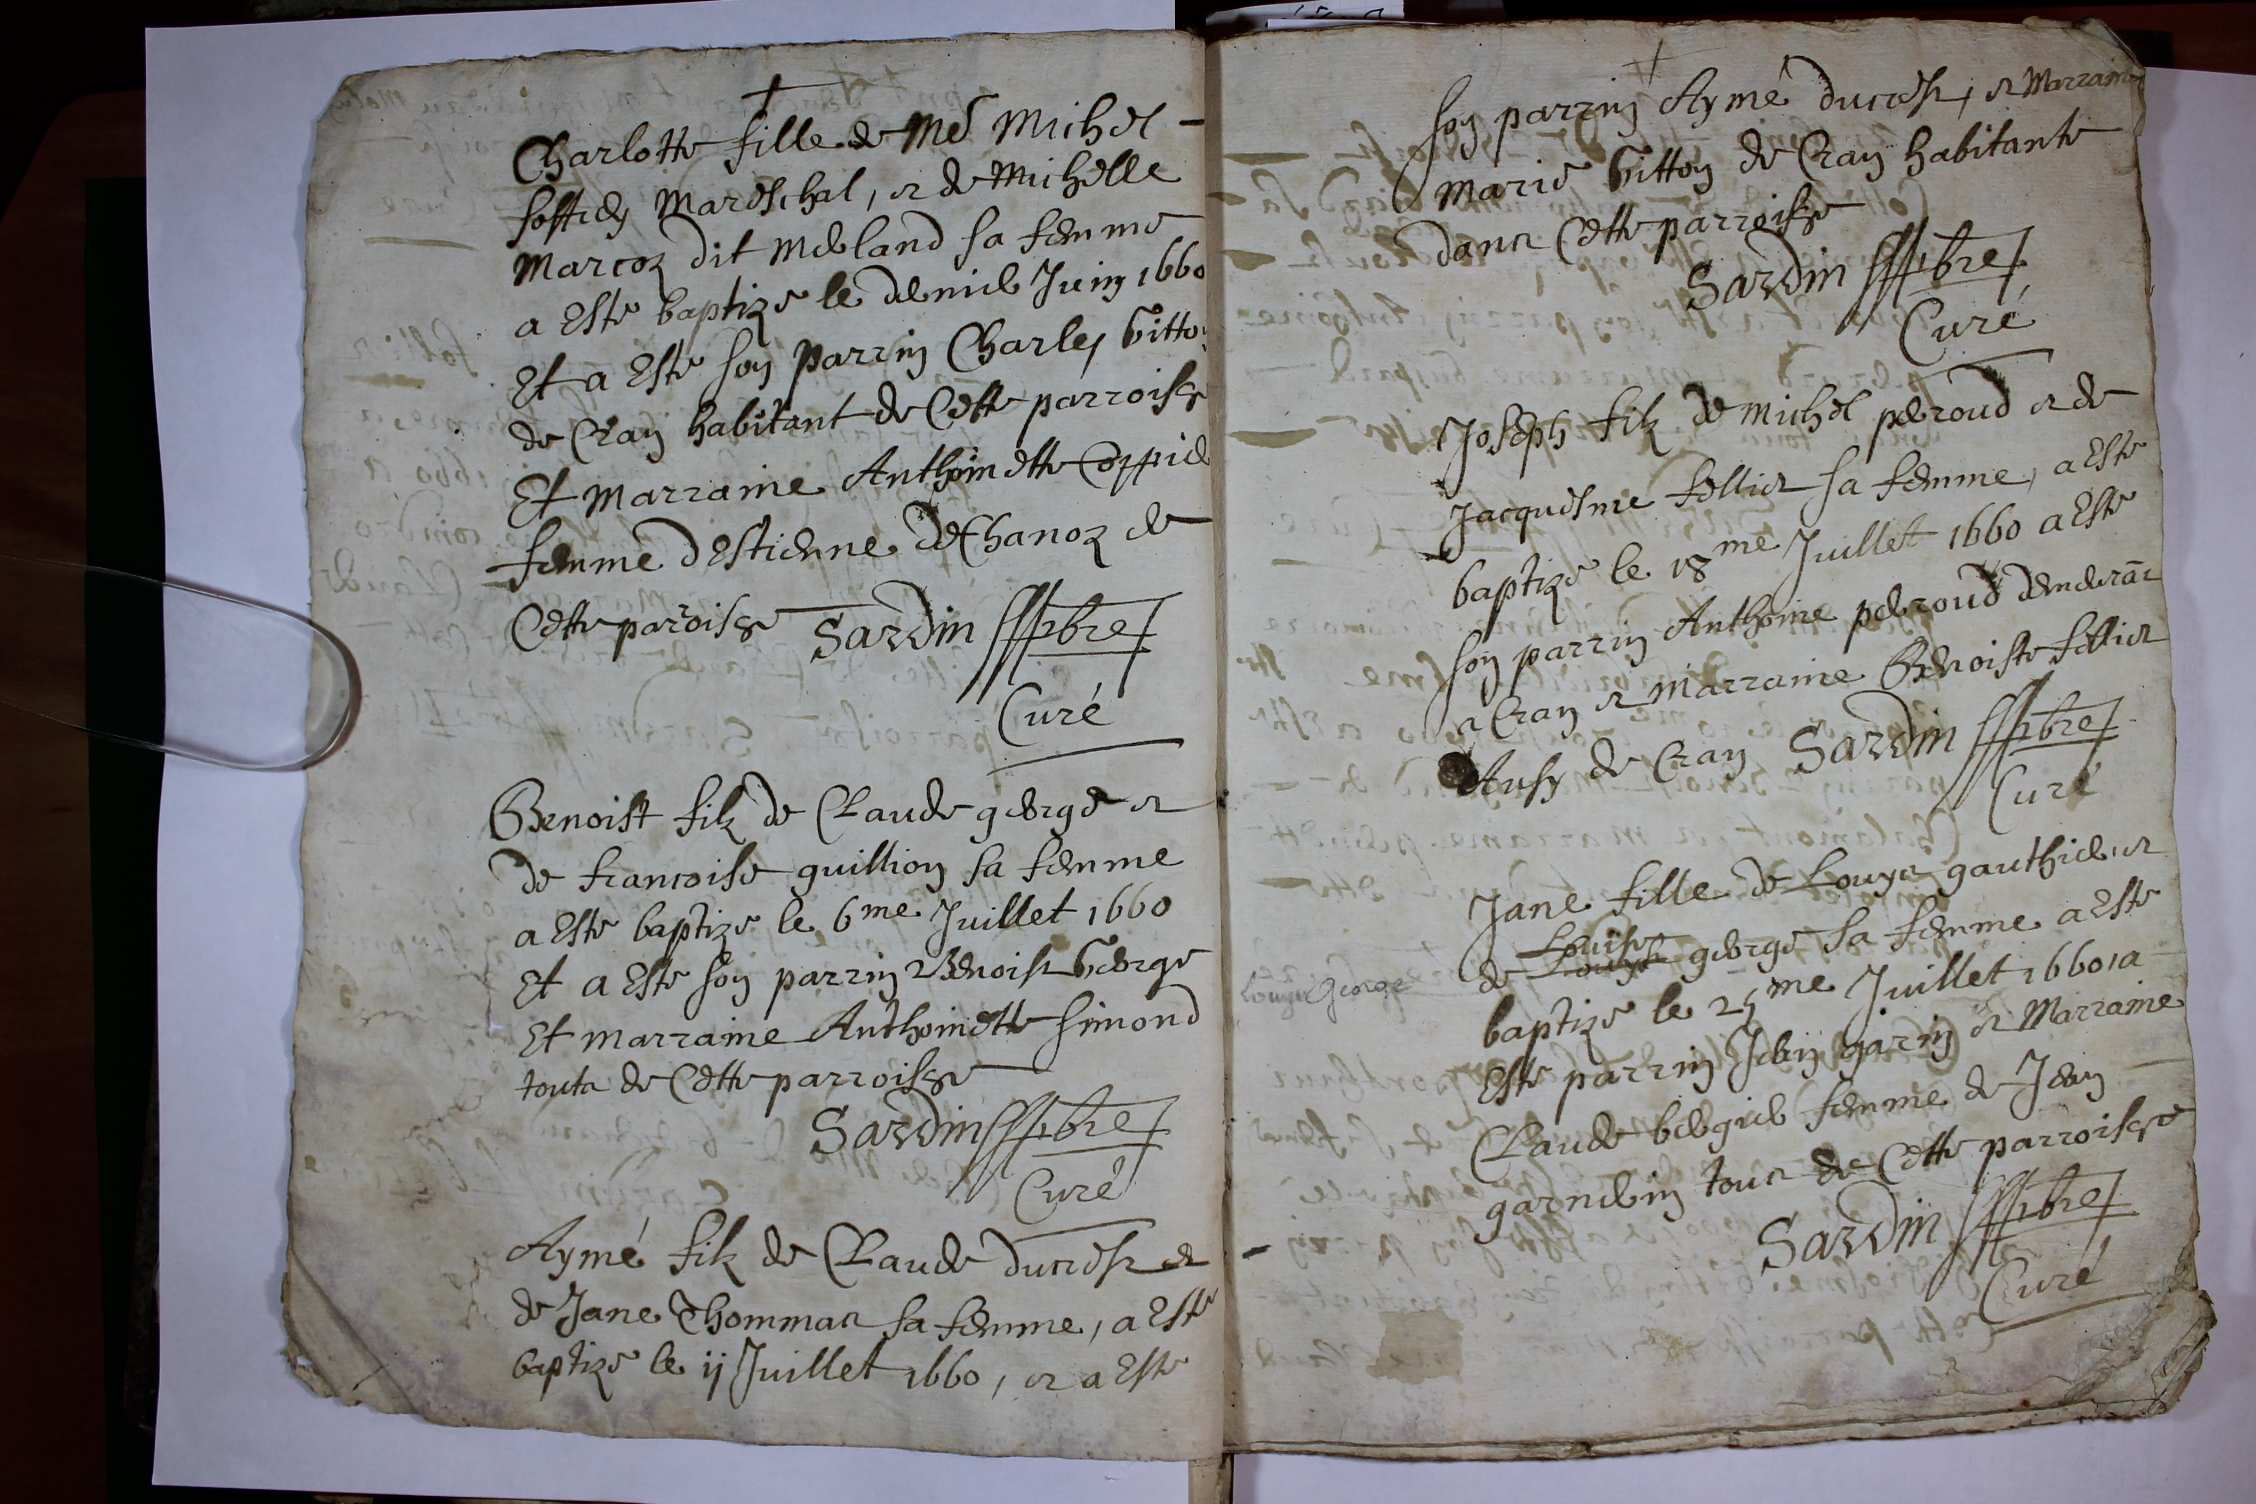 Charlotte fille de Me Michel -
Mareschal, et de Michelle
Marcoz dit Merland sa femme
a Este baptize le dernier Juin 1660
Et a Este son Parrin Charles Gitton
de Cran habitant de Cette parroisse
Et Marraine Anthoinette
femme d'Estienne de Chanoz de
Cette paroisse Sardin pbre
Curé
Benoist filz de Claude george et
de francoise guillion sa femme
a Este baptize le 6me Juillet 1660
Et a Este son parrin Benoist George
Et marraine Anthoinette Simond
touts de Cette parroisse
Sardin pbre
Curé
Aymé filz de Claude ducrest et
de Jane Thommas sa femme, a Este
baptize le ij Juillet 1660, et a Este
son parrin Aymé ducrest, et Marraine
Marie Gitton de Cran habitante
dans Cette parroisse
Sardin pbre
Curé
Joseph filz de Michel perroud et de
Jacquesme tellier sa femme, a Este
baptize le 18me Juillet 1660 a Este
son parrin Anthoine perroud demeurāt
a Cran et Marraine Benoiste tellier
Ausy de Cran Sardin pbre
Curé
Jane fille de Louys gauthier et
Louise
de george sa femme a Este
baptize le 25me Juillet 1660, a
Este parrin Jean garin et Marraine
Claude bergier femme de Jean
garnérin tous de Cette parroisse
Sardin pbre
Curé